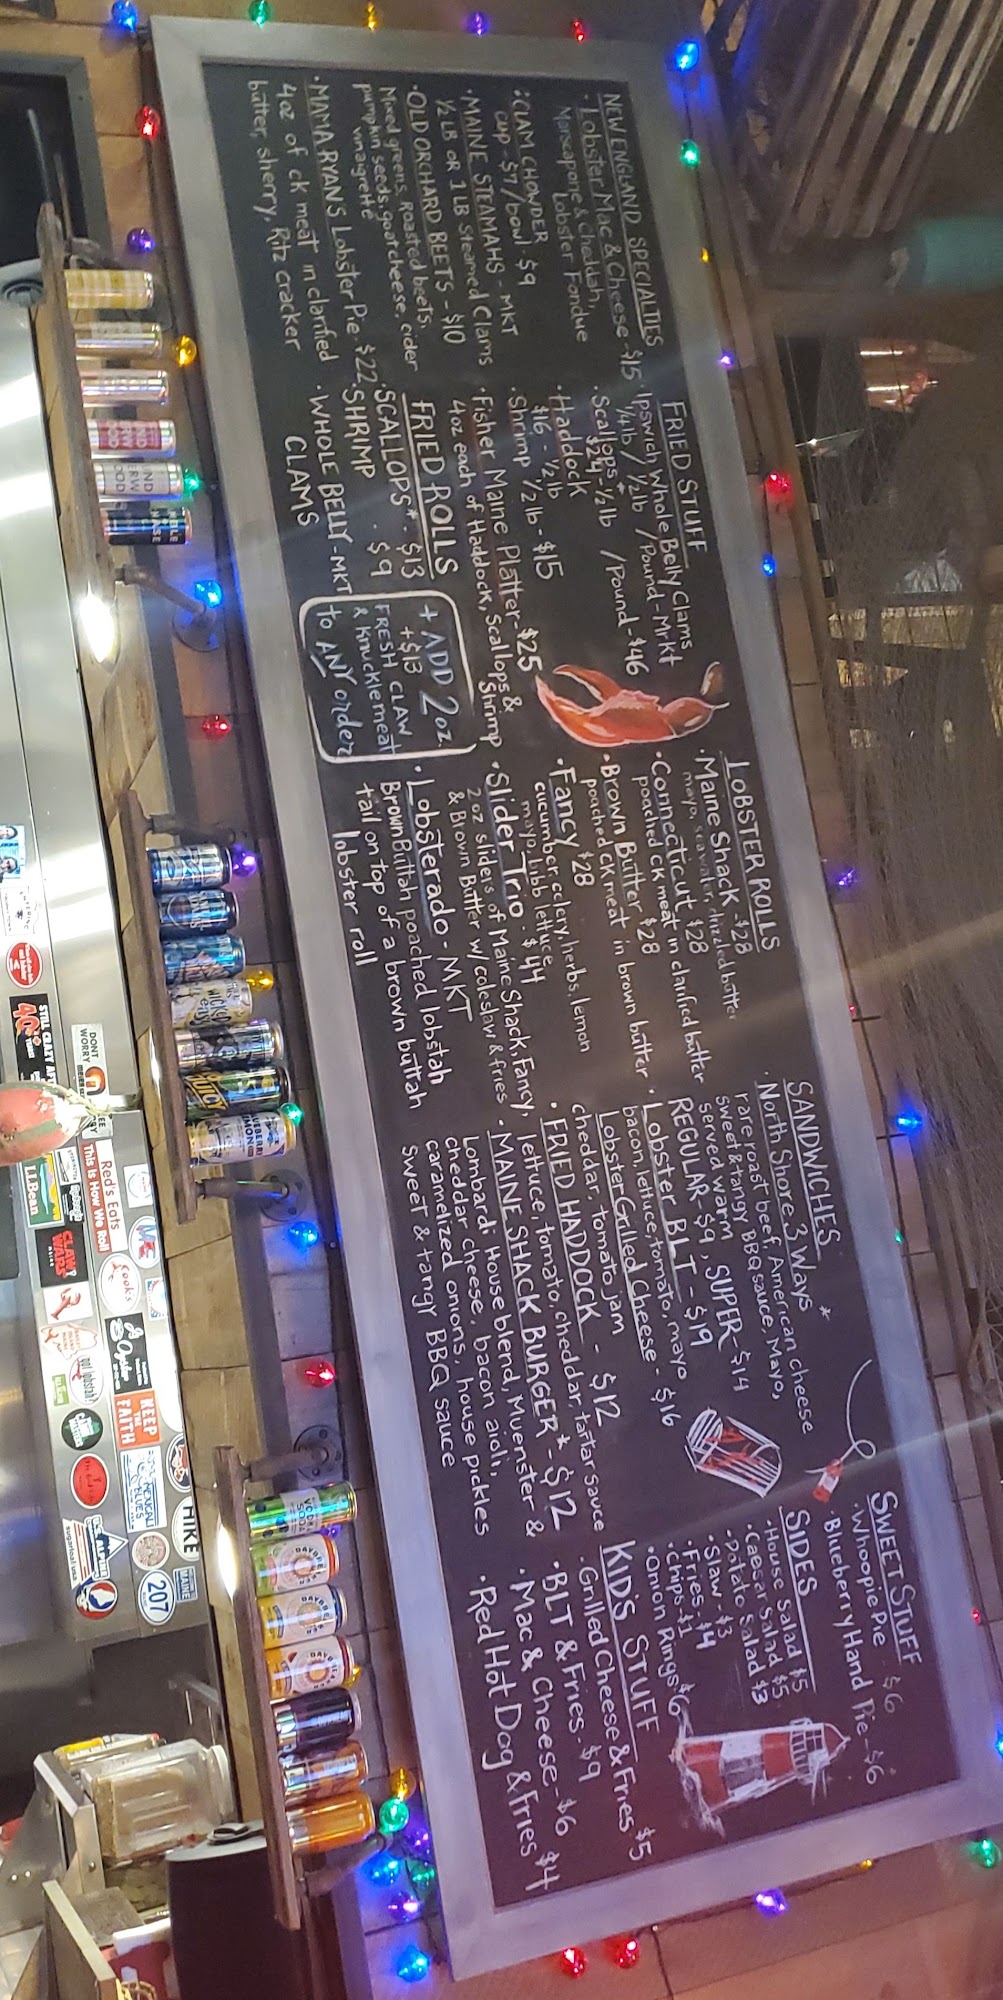 NEW ENGLAND SPECIALTIES
· Lobster Mac & Cheese - $15
Marscapone & cheddah,
Lobster Fondue
· CLAM CHOWDER
cup - $7/bowl $9
· MAINE STEAMAHS - MKT
½ LB OR 1 LB Steamed Clams
· OLD ORCHARD BEETS - $10
Mixed greens, Roasted beets,
pumpkin seeds, goat cheese, cider
vinagrette
· MAMA RYANS Lobster Pie $22
4oz of ck meat in clarified
butter, sherry, Ritz cracker
FRIED STUFF
· Ipswich Whole Belly Clams
¼lb / ½lb / Pound - Mrkt
· Scallops *
$24 - ½lb / Pound - $46
· Haddock
$16 - ½lb
· Shrimp ½lb - $15
· Fisher Maine Platter - $25
4oz each of Haddock, Scallops &
Shrimp
FRIED ROLLS
· SCALLOPS* · $13
· SHRIMP · $9
· WHOLE BELLY - MKT
CLAMS
+ ADD 2oz.
+$13
FRESH CLAW
& Knuckle meat
to ANY order
LOBSTER ROLLS
· Maine Shack - $28
mayo, sea water, drizzled butter
· Connecticut $28
poached CK meat in clarified butter
· Brown Butter $28
poached CK meat in brown butter
· Fancy $28
cucumber, celery, herbs, lemon
mayo, bibb lettuce
· Slider Trio · $44
2 oz sliders of Maine Shack, Fancy,
& Brown Butter w/ coleslaw & fries
· Lobsterado - MKT
Brown Buttah poached lobstah
tail on top of a brown buttah
lobster roll
SANDWICHES
· North Shore 3 Ways *
rare roast beef, American cheese
sweet & tangy BBQ sauce, Mayo,
served warm
REGULAR $9, SUPER $14
· Lobster BLT - $19
bacon, lettuce, tomato, mayo
Lobster Grilled Cheese - $16
cheddar, tomato jam
· FRIED HADDOCK - $12
lettuce, tomato, cheddar, tartar sauce
· MAINE SHACK BURGER * - $12
Lombardi House blend, Muenster &
cheddar cheese, bacon aioli,
caramelized onions, house pickles
sweet & tangy BBQ sauce
SWEET STUFF
· Whoopie Pie - $6
· Blueberry Hand Pie - $6
SIDES
· House Salad $5
· Caesar Salad $5
· Potato Salad $3
· Slaw - $3
· Fries - $4
· Chips $1
· Onion Rings $6
KID'S STUFF
· Grilled Cheese & Fries $5
· BLT & Fries - $9
· Mac & Cheese - $6
· Red Hot Dog & fries $4
STILL CRAZY
40+
DONT
WORRY
Red's Eats
This Is How We Roll
L.L.Bean
CLAW
WARS
Cooks
ME
Oyster
KEEP
THE
FAITH
got lobstah?
HIKE
MAINE
207
ALPINE
sugarloaf
JUICY
VODKA
SODA